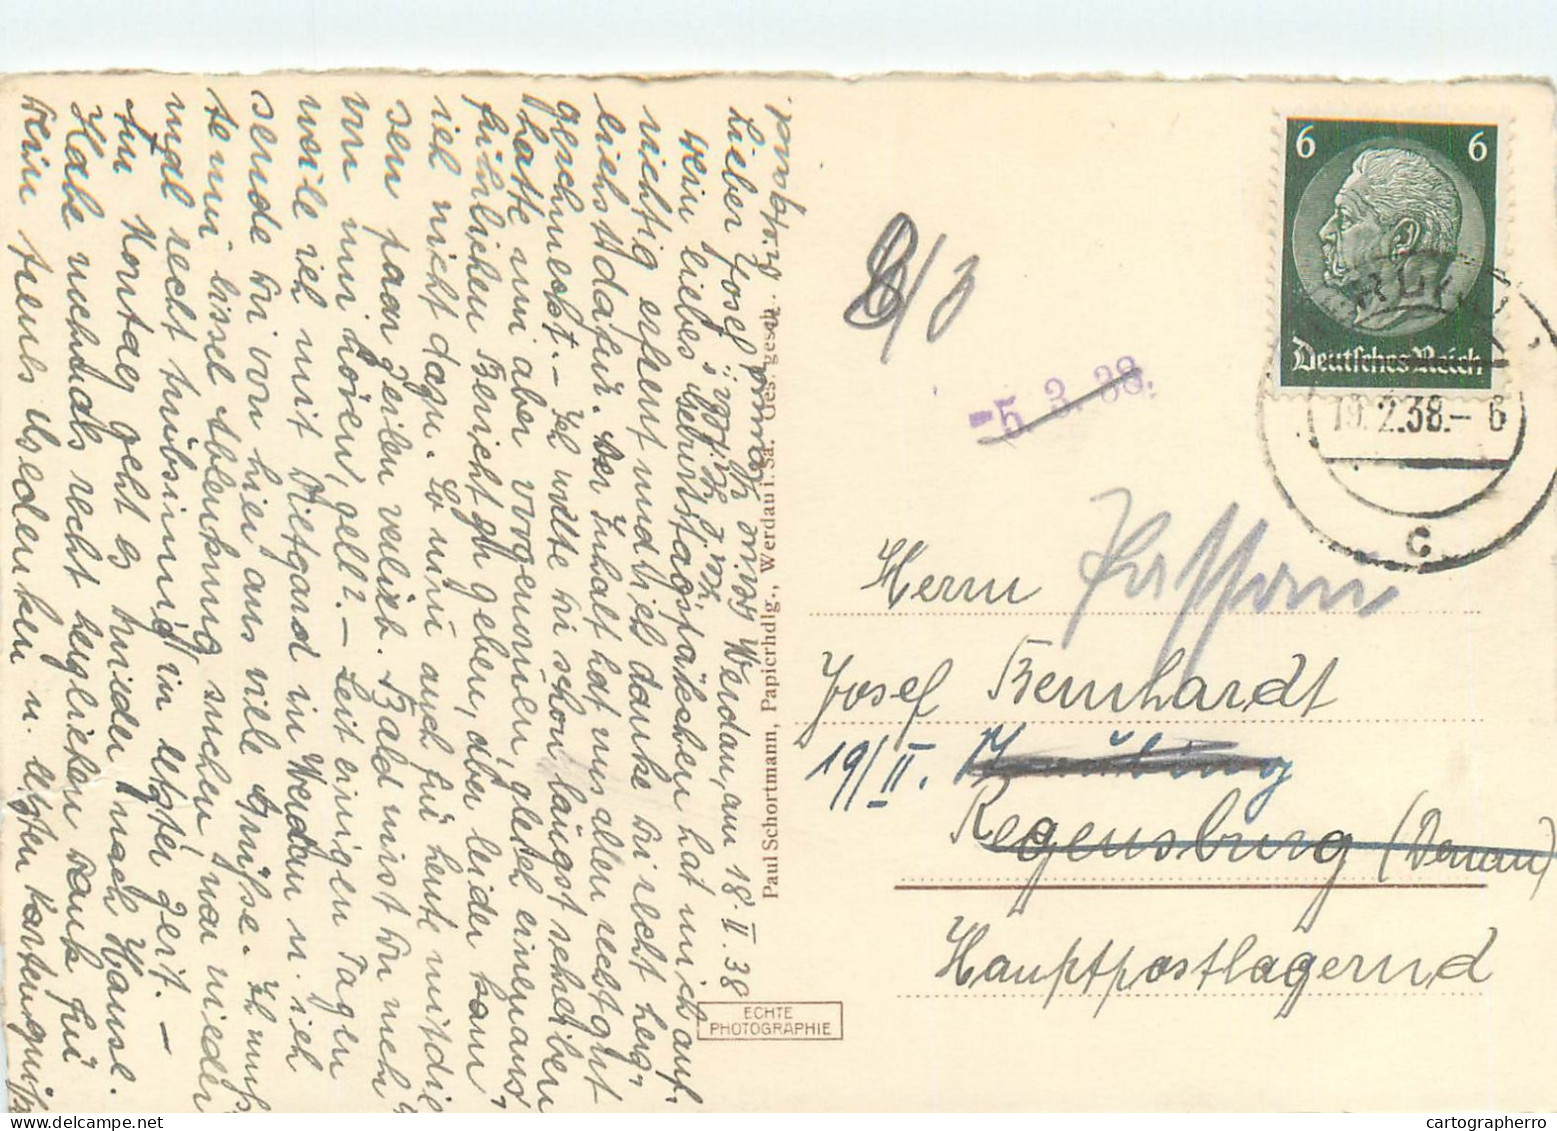 Lieber Josef! Werdau, am 18.II.38
Dein liebes Geburtstagspäckchen hat mich auf-
richtig erfreut und ich danke Dir recht herz-
lichst dafür. Der Inhalt hat uns allen recht gut
geschmeckt. – Ich wollte Dir schon längst schreiben
hatte mir aber vorgenommen, gleich einen aus-
führlichen Bericht zu geben, aber leider kam
ich nicht dazu. So nimm auch für heute mit die-
sen paar Zeilen vorlieb. Bald wirst Du mehr
von mir hören, gell? – Seit einigen Tagen
weile ich mit Hiltgard in Werdau u. ich
sende Dir von hier aus viele Grüße. Ich muß
mir bissel Ablenkung suchen, war wieder
mal recht trübsinnig in letzter Zeit. –
Am Montag geht es wieder nach Hause.
Habe nochmals recht herzlichen Dank für
Dein treues Gedenken u. letzten Kartengruß
Paul Schortmann, Papierhdlg., Werdau i. Sa. Ges. gesch.
ECHTE
PHOTOGRAPHIE
6 6
Deutsches Reich
19.2.38.- 6
c
8/3
-5. 3. 38.
Herrn
Josef Bernhardt
19/II.
Regensburg (Donau)
Hauptpostlagernd
cartographerro